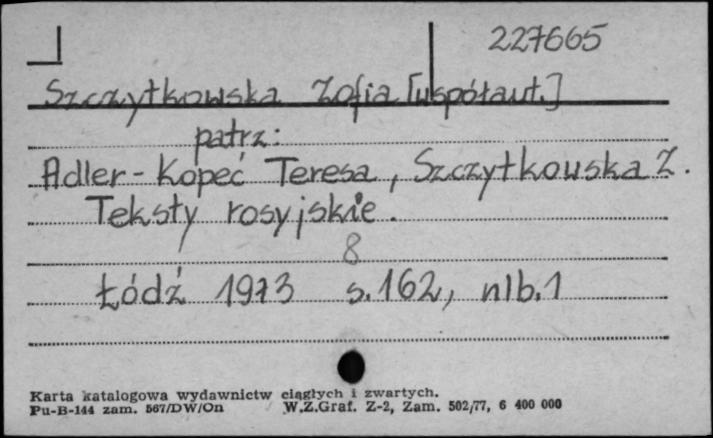 227665
Szczytkowska Zofia [współaut.]
patrz:
Adler-Kopeć Teresa, Szczytkowska Z.
Teksty rosyjskie.
8
Łódź 1973 s.162, nlb.1
Karta katalogowa wydawnictw ciągłych i zwartych.
Pu-B-144 zam. 567/DW/On W.Z.Graf. Z-2, Zam. 502/77, 6 400 000